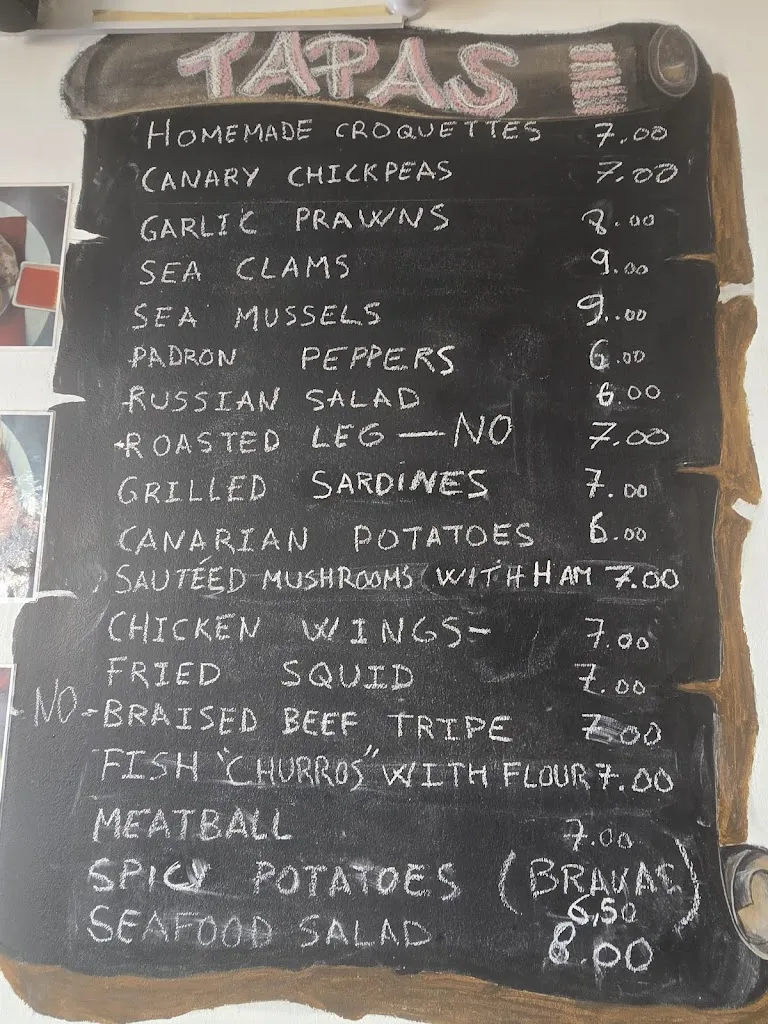 TAPAS
HOMEMADE CROQUETTES 7.00
CANARY CHICKPEAS 7.00
GARLIC PRAWNS 8.00
SEA CLAMS 9.00
SEA MUSSELS 9.00
PADRON PEPPERS 6.00
RUSSIAN SALAD 6.00
ROASTED LEG — NO 7.00
GRILLED SARDINES 7.00
CANARIAN POTATOES 6.00
SAUTÉED MUSHROOMS WITH HAM 7.00
CHICKEN WINGS- 7.00
FRIED SQUID 7.00
-NO-BRAISED BEEF TRIPE 7.00
FISH "CHURROS" WITH FLOUR 7.00
MEATBALL 7.00
SPICY POTATOES (BRAVAS)
6,50
SEAFOOD SALAD 8.00